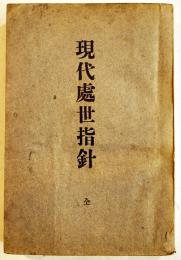 現代處世指針
全